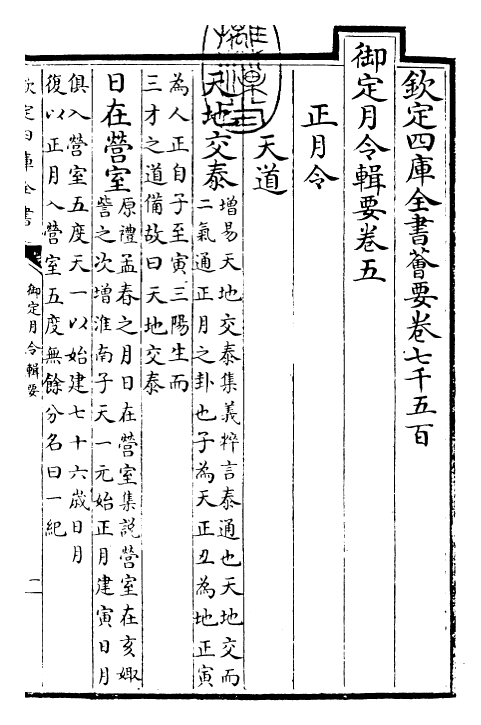 欽定四庫全書薈要卷七千五百
御定月令輯要卷五
正月令
天道
天地交泰
增易天地交泰集義粹言泰通也天地交而
二氣通正月之卦也子為天正丑為地正寅
為人正自子至寅三陽生而
三才之道備故曰天地交泰
日在營室
原禮孟春之月日在營室集説營室在亥娵
訾之次增淮南子天一元始正月建寅日月
俱入營室五度天一以始建七十六歳日月
復以正月入營室五度無餘分名曰一紀
欽定四庫全書
御定月令輯要